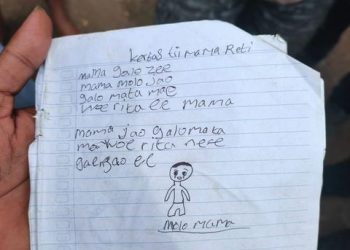 kertas tii mama Roti
mama galo zee
mama molo jao
galo mata mae
woe rita ee mama
mama jao galo mata
mawoe rita nere
gaergao ee
molo mama